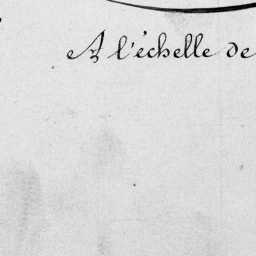 A l'échelle de